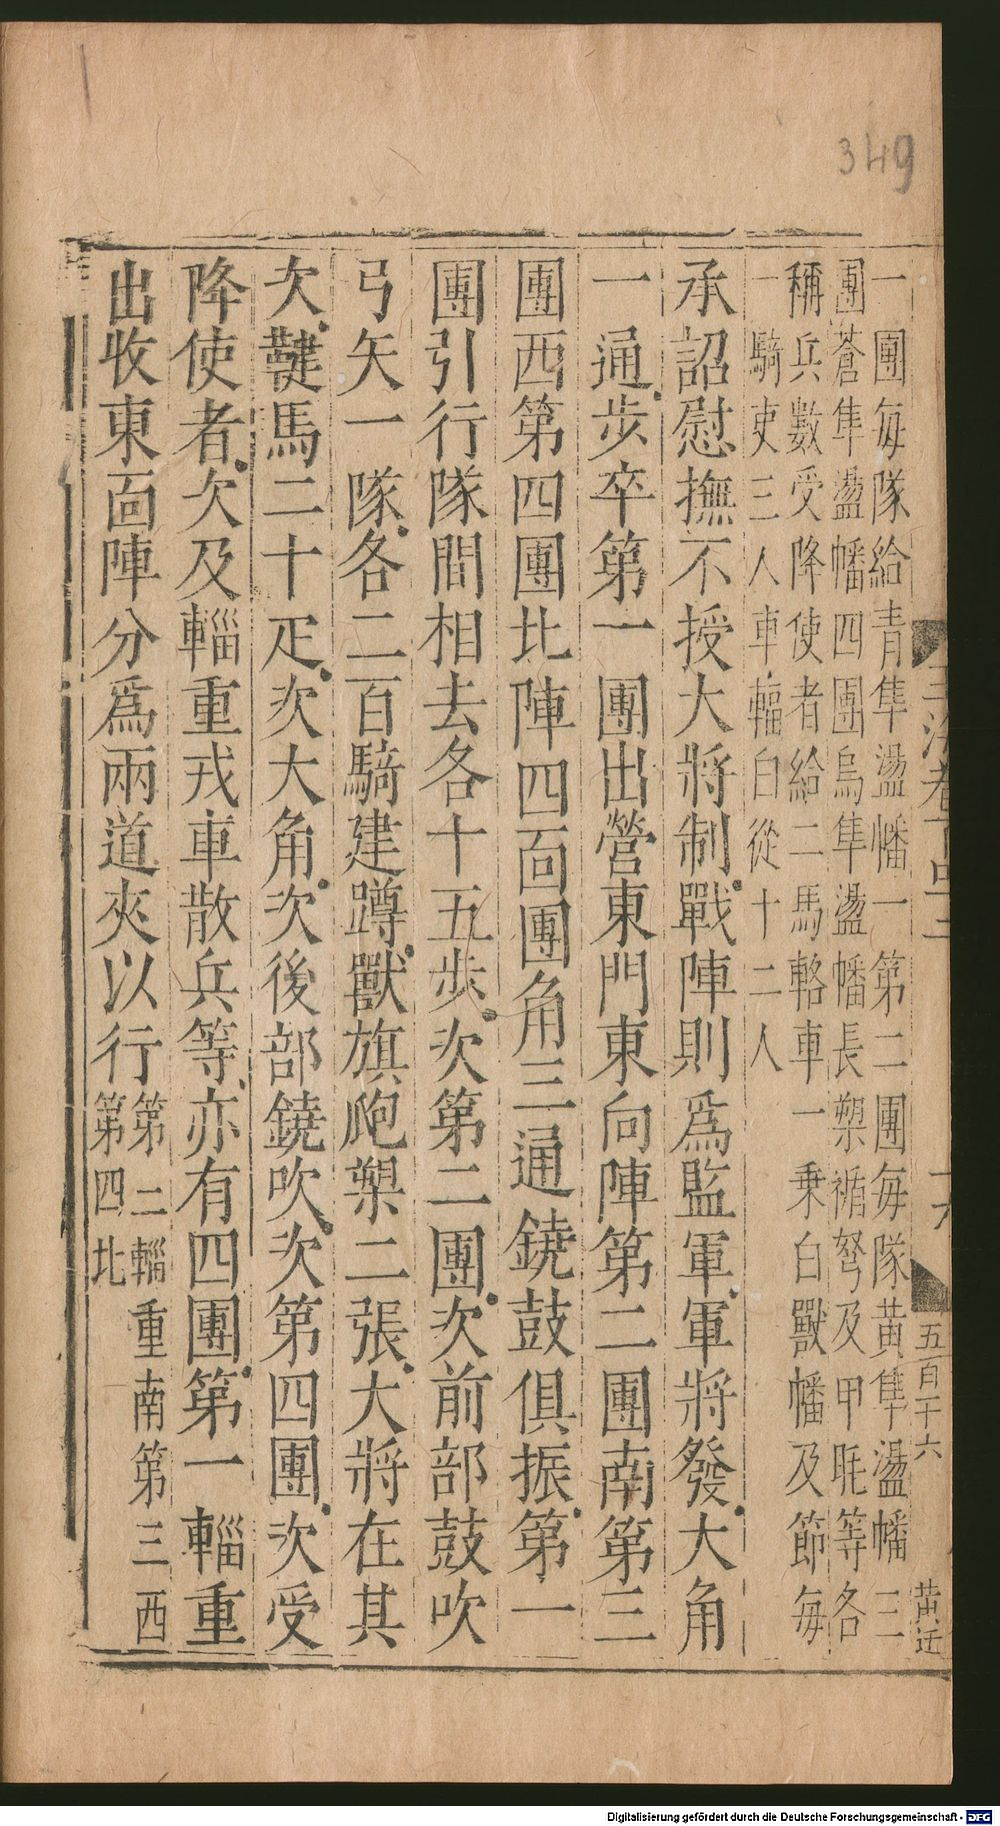 349
一團每隊給青隼盪幡一第二團每隊黄隼盪幡三
團蒼隼盪幡四團烏隼盪幡長槊楯弩及甲毦等各
稱兵數受降使者給二馬軺車一乗白獸幡及節毎
一騎吏三人車輻白從十二人
承詔慰撫不授大將制戰陣則爲監軍軍將發大角
一通步卒第一團出營東門東向陣第二團南第三
團西第四團北陣四面團角三通鐃鼓俱振第一
團引行隊間相去各十五步次第二團次前部鼓吹
弓矢一隊各二百騎建蹲獸旗瓟槊二張大將在其
次鞬馬二十疋次大角次後部鐃吹次第四團次受
降使者次及輜重戎車散兵等亦有四團第一輜重
出收東面陣分爲兩道夾以行
第二輜重南第三西
第四北
五百十六
六
Digitalisierung gefördert durch die Deutsche Forschungsgemeinschaft - DFG